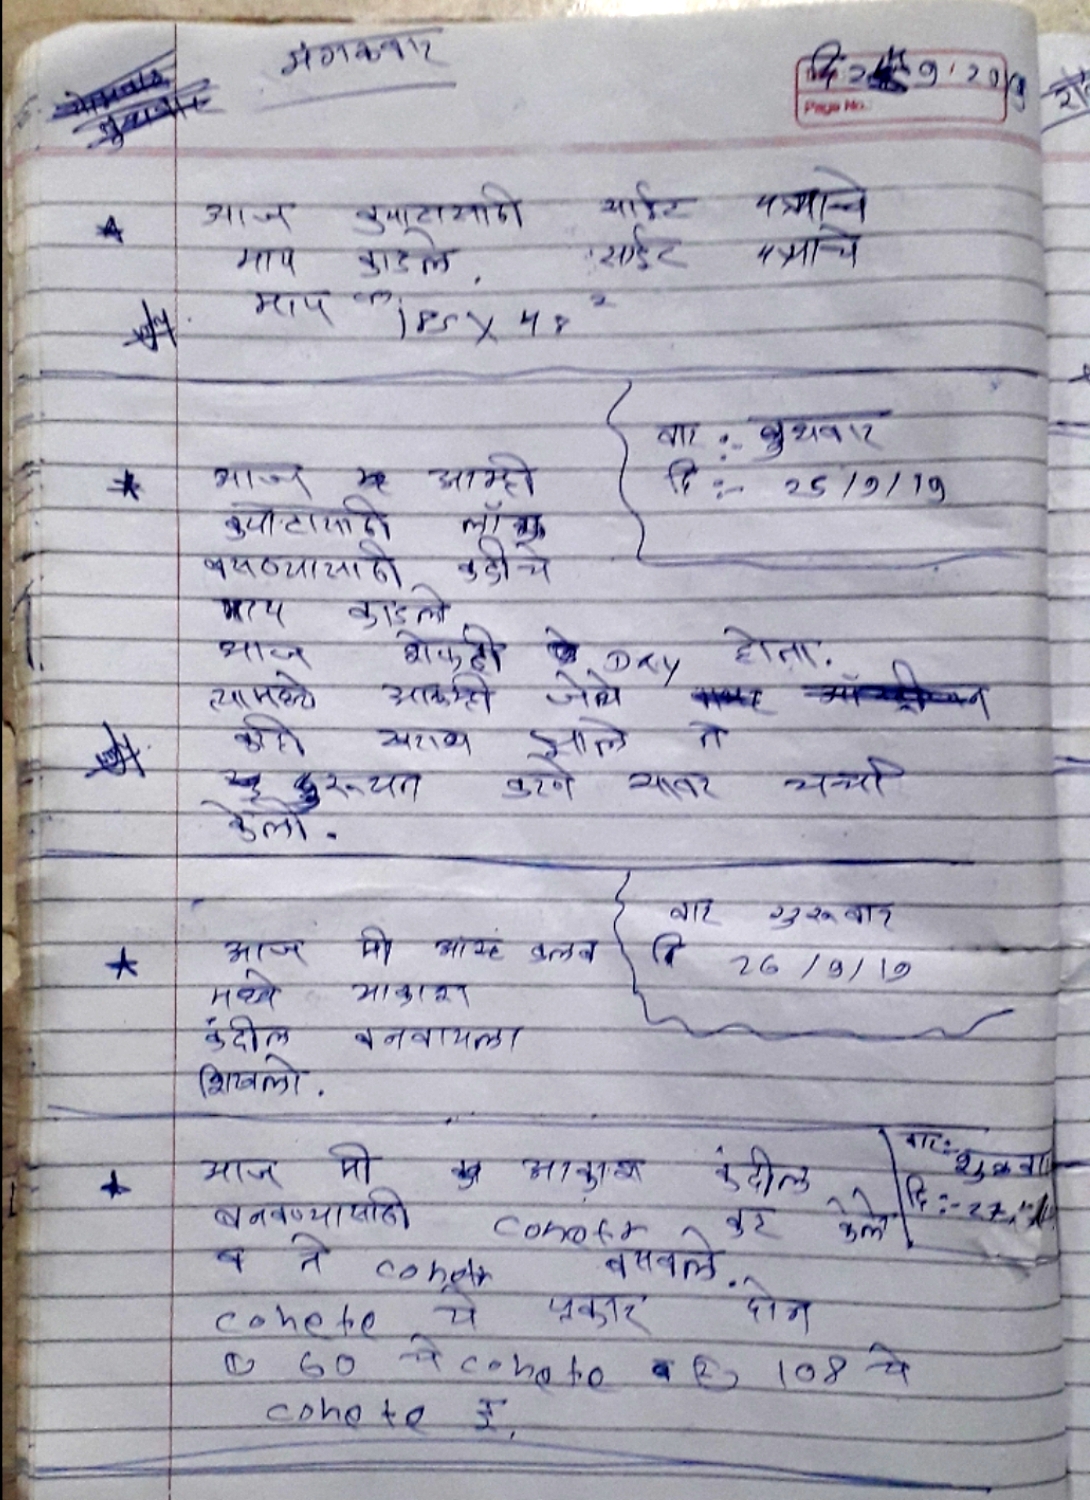 मंगळवार
Page No.
आज कपाटासाठी साईट पत्र्याचे
माप काढले. साईट पत्र्याचे
माप 185 X 48
वार :- बुधवार
दि :- 25/9/19
आज आम्ही
कपाटासाठी लॉक
बसण्यासाठी कडीचे
माप काढले
आज शेवटी DAY होता.
त्यामध्ये आम्ही जेथे
काही खराब झाले ते
दुरुस्त करणे यावर चर्चा
केली.
वार गुरुवार
दि 26/9/19
आज मी क्लब
मध्ये आकाश
कंदील बनवायला
शिकलो.
वार:- शुक्रवा
दि:- 27
आज मी आकाश कंदील
बनवण्यासाठी conete कट केले
व ते conete बसवले.
conete चे प्रकार दोन
① 60 चे conete व ② 108 चे
conete इ.